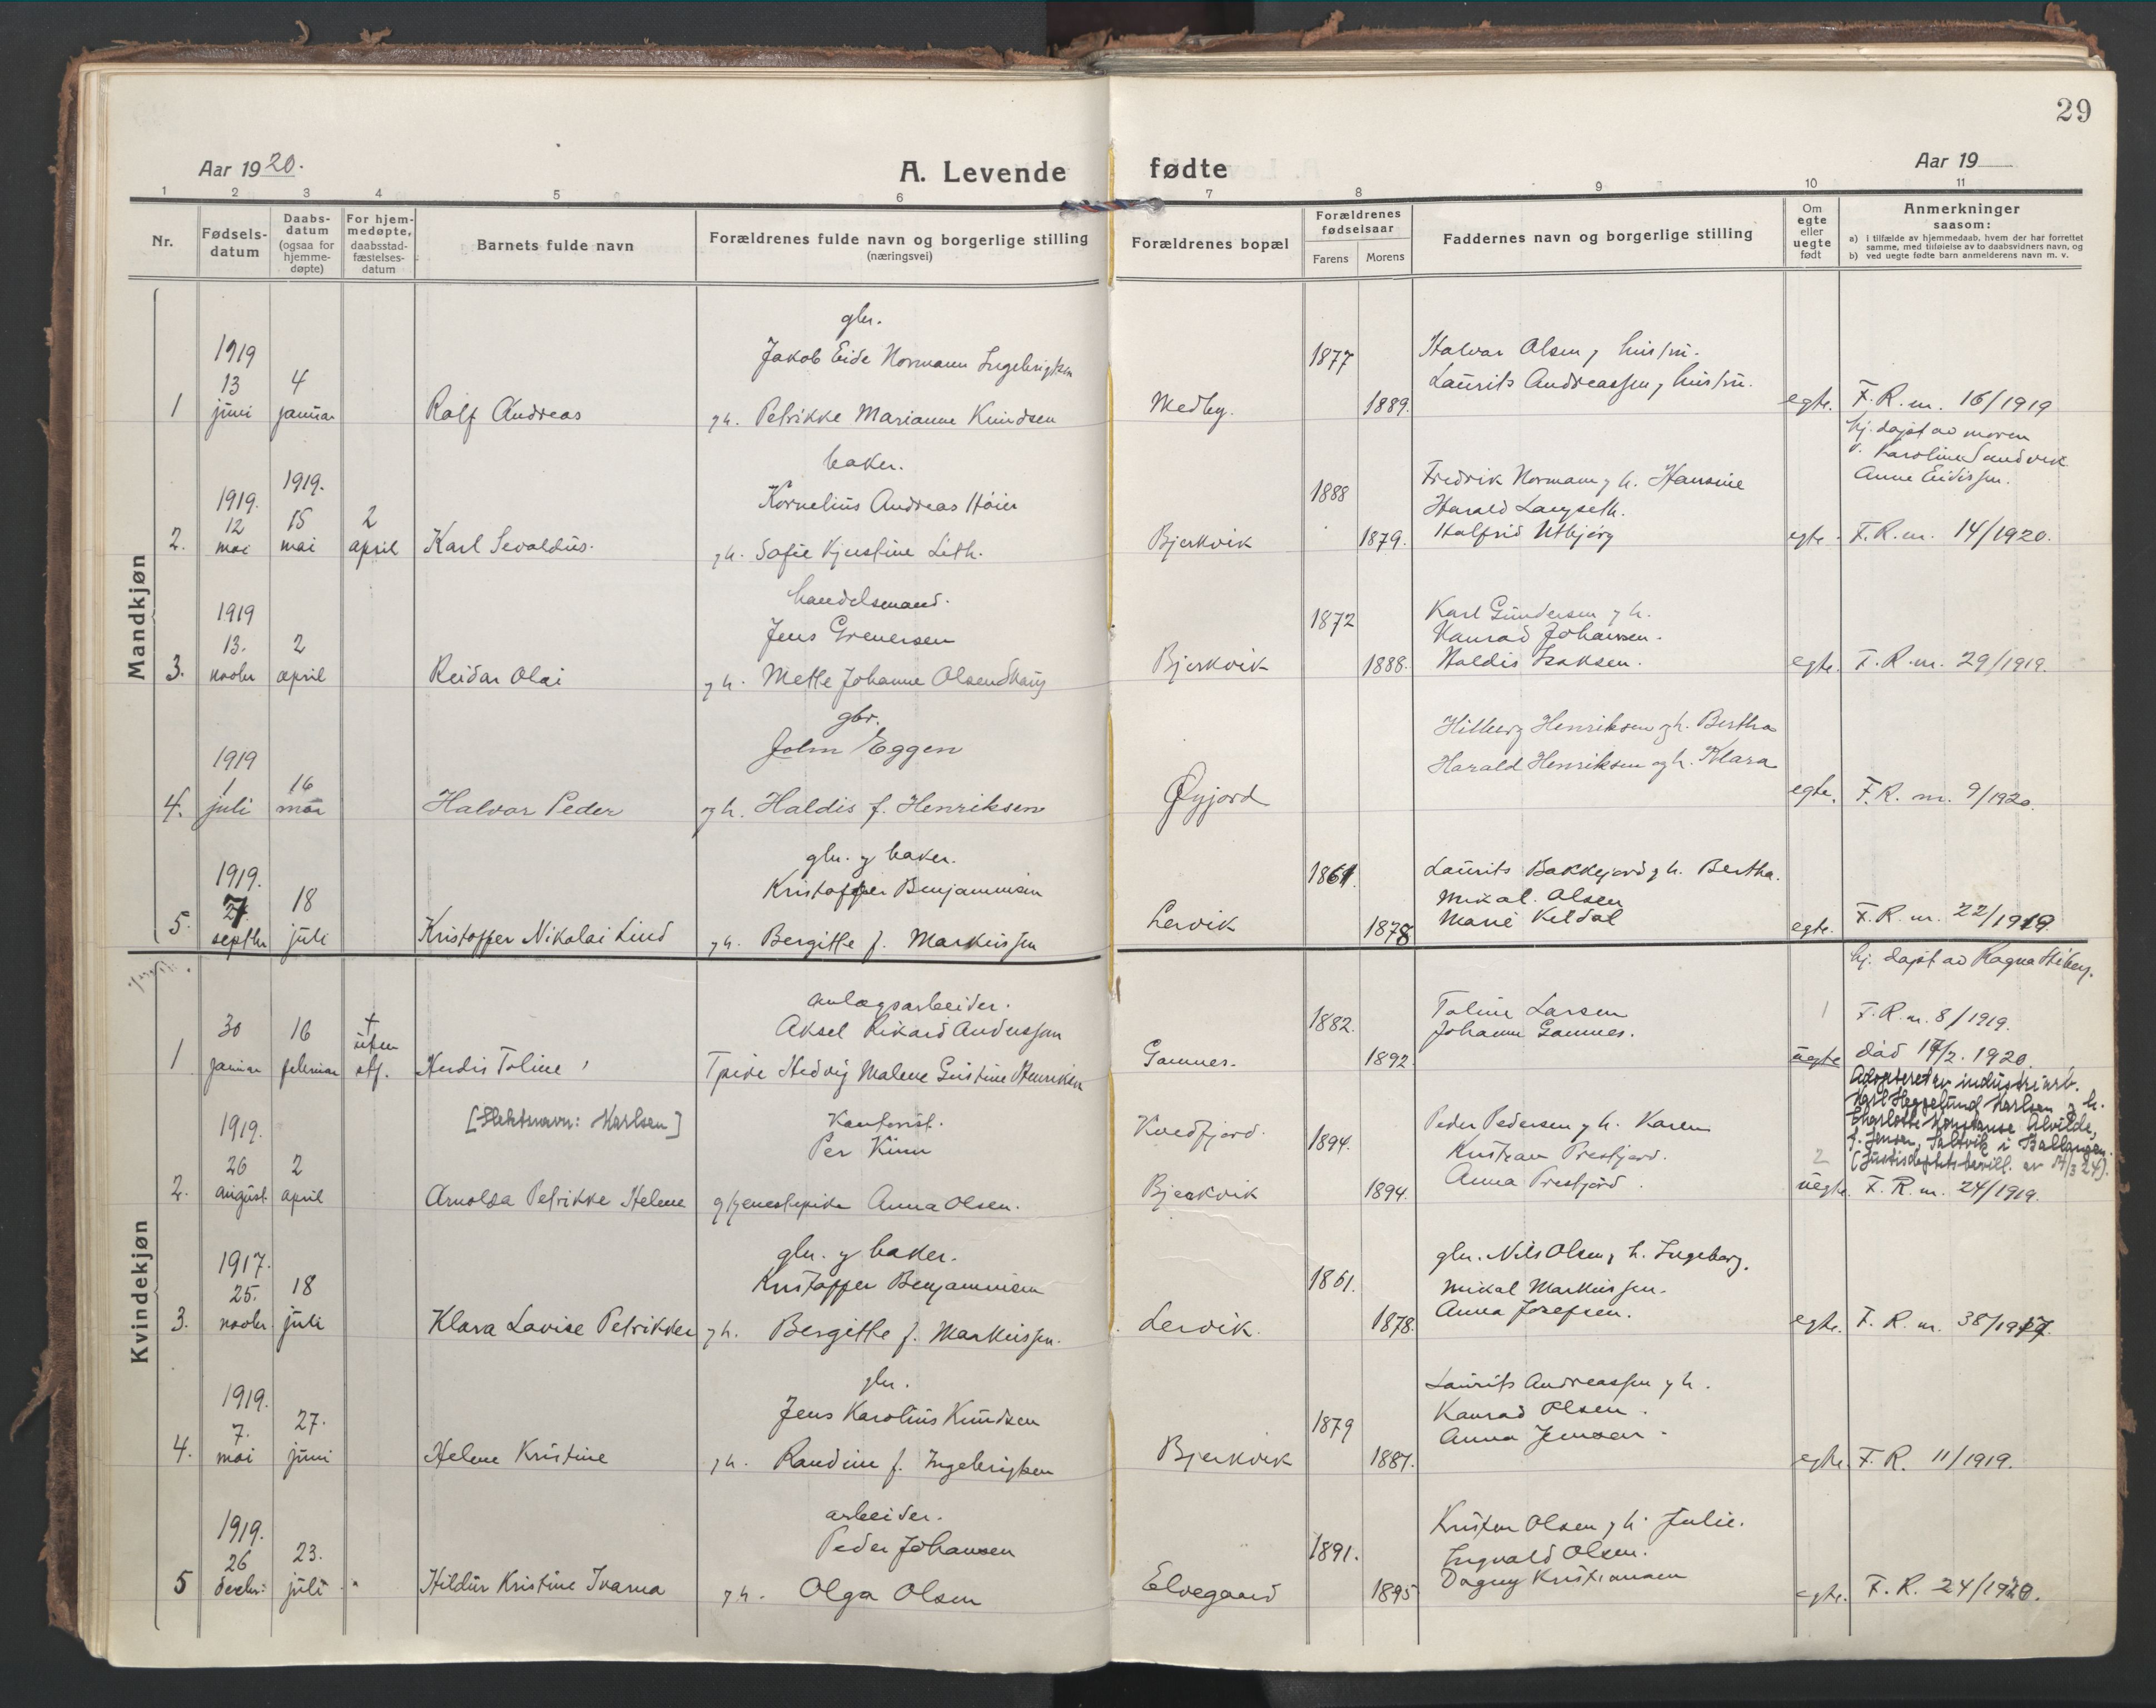 29
Aar 1920.
A. Levende fødte
Aar 19
1 2 3 4 5 6 7 8 9 10 11
Nr.
Fødsels-
datum
Daabs-
datum
(ogsaa for
hjemme-
døpte)
For hjem-
medøpte,
daabsstad-
fæstelses-
datum
Barnets fulde navn
Forældrenes fulde navn og borgerlige stilling
(næringsvei)
Forældrenes bopæl
Forældrenes
fødselsaar
Farens Morens
Faddernes navn og borgerlige stilling
Om
egte
eller
uegte
født
Anmerkninger
saasom:
a) i tilfælde av hjemmedaab, hvem der har forrettet
samme, med tilføielse av to daabsvidners navn, og
b) ved uegte fødte barn anmelderens navn m. v.
Mandkjøn
1
1919
13
juni
4
januar
Rolf Andreas
gbr.
Jakob Eide Normann Ingebrigtsen
g h. Petrikke Marianne Knudsen
Medby.
1877
1889.
Halvar Olsen g hustru.
Laurits Andreassen g hustru.
egte.
F. R. nr. 16/1919
2.
1919.
12
mai
1919.
15
mai
2
april
Karl Sevaldus.
baker.
Kornelius Andreas Høier
g h. Sofie Kjerstine Leth.
Bjerkvik
1888
1879.
Fredrik Normann g h. Hansine
Harald Langseth.
Halfrid Utbjørg
egte.
hj. døpt av moren
v. Karoline Sandvik
Anne Eidissen.
F. R. nr. 14/1920.
3.
1919
13.
novbr
2
april
Reidar Olai
handelsmand.
Jens Grenersen
g h. Mette Johanne Olsen Skaug
Bjerkvik
1872
1888.
Karl Gundersen g h.
Konrad Johansen.
Haldis Isaksen.
egte.
F. R. nr. 29/1919.
4.
1919
1
juli
16
mai
Halvar Peder
gbr.
John Eggen
og h. Haldis f. Henriksen
Øyjord
Hilberg Henriksen og h. Bertha
Harald Henriksen og h. Klara
egte.
F. R. nr. 9/1920.
5.
1919.
septbr
18
juli
Kristoffer Nikolai Lind
gbr. g baker.
Kristoffer Benjaminsen
g h. Bergitte f. Markussen
Lervik
1861.
1878
Laurits Bakkejord g h. Bertha.
Mikal Olsen
Marie Kildal
egte.
F. R. nr. 22/1919.
Kvindekjøn
1
30
januar
16
februar
†
uten
stf.
Herdis Toline
anlægsarbeider.
Aksel Rikard Anderssen
Tpike Hedvig Malene Gustine Henriksen
Gamnes.
1882.
1892
Toline Larsen
Johanne Gamnes.
1
uegte
hj. døpt av Ragna Heiberg.
F. R. nr. 8/1919.
død 17/2. 1920.
2.
1919.
26
august
2
april
[Slektsnavn: Karlsen]
Arnolda Petrikke Helene
Kontorist.
Per Kinn
g tjenestepike Anna Olsen.
Kvedfjord.
Bjerkvik
1894.
1894.
Peder Pedersen g h. Karen
Kristian Prestjord.
Anna Prestjord.
2
uegte.
Adopteret av industriarb.
Karl Heggelund Karlsen g h.
Charlotte Konstanse Alvilde,
f. Jensen, Saltvik i Ballangen.
(Justisdeptets bevill. av 14/3 24).
F. R. nr. 24/1919.
3.
1917.
25.
novbr
18
juli
Klara Lovise Petrikke
gbr. g baker.
Kristoffer Benjaminsen
g h. Bergitte f. Markussen.
Lervik.
1861.
1878.
gbr. Nils Olsen g h. Ingeborg.
Mikal Markussen.
Anna Josefsen.
egte.
F. R. nr. 38/1917.
4.
1919.
7.
mai
27.
juni
Helene Kristine
gbr.
Jens Karolius Knudsen
g h. Randine f. Ingebrigtsen
Bjerkvik
1879
1887.
Laurits Andreassen g h.
Konrad Olsen.
Anna Jensen.
egte.
F. R. 11/1919.
5
1919.
26
decbr.
23.
juli
Hildur Kristine Ivarna
arbeider.
Peder Johansen
g h. Olga Olsen
Elvegaard
1891.
1895
Kristen Olsen g h. Julie.
Ingvald Olsen.
Dagny Kristiansen
egte.
F. R. 24/1920.